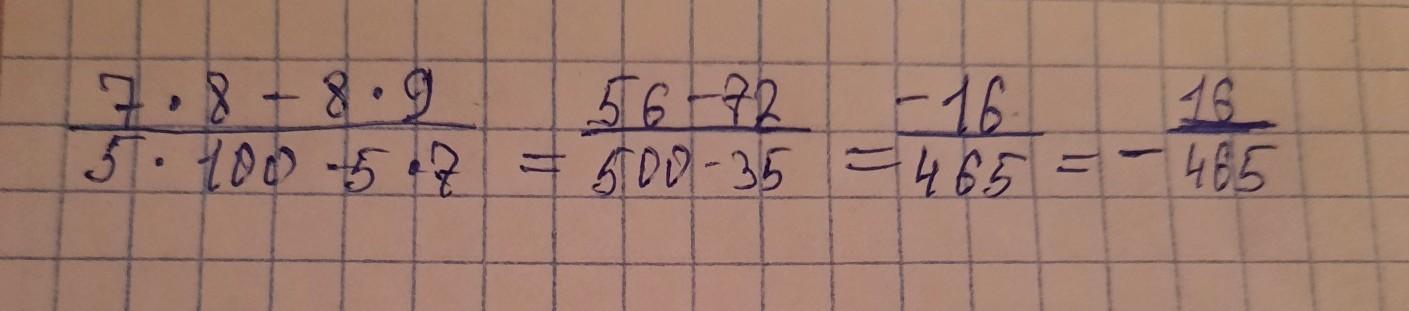 7 · 8 - 8 · 9 / 5 · 100 - 5 · 7 = 56 - 72 / 500 - 35 = -16 / 465 = - 16 / 465